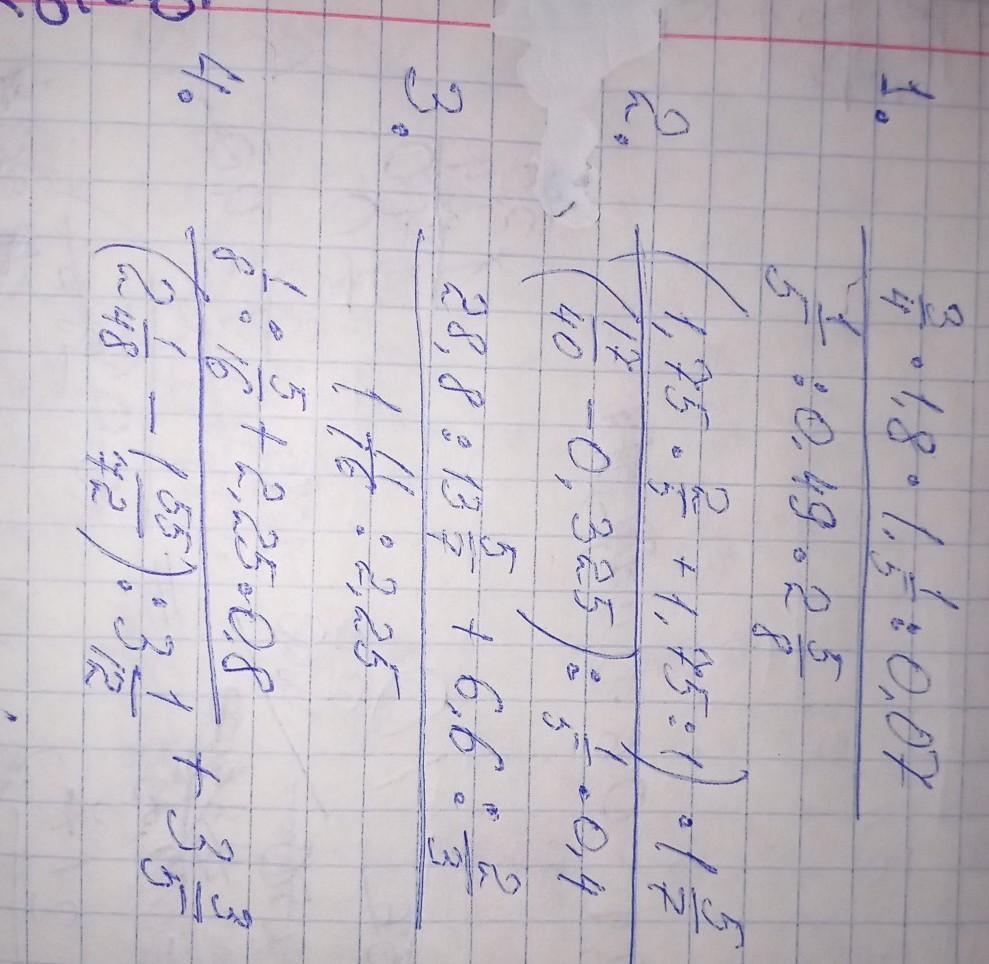 1. 3/4 · 1,8 · 1,1/5 : 0,07
1/5 : 0,49 · 2 5/8
2. (1,75 · 2/5 + 1,75 : 1) · 1 5/7
(17/40 - 0,325) : 1/5 · 0,4
3. 28,8 : 13 5/7 + 6,6 : 2/3
1 11/16 : 2,25
4. 1/8 : 5/16 + 2,25 · 0,8
(2 1/48 - 1 55/72) : 3 1/12 + 3 3/5